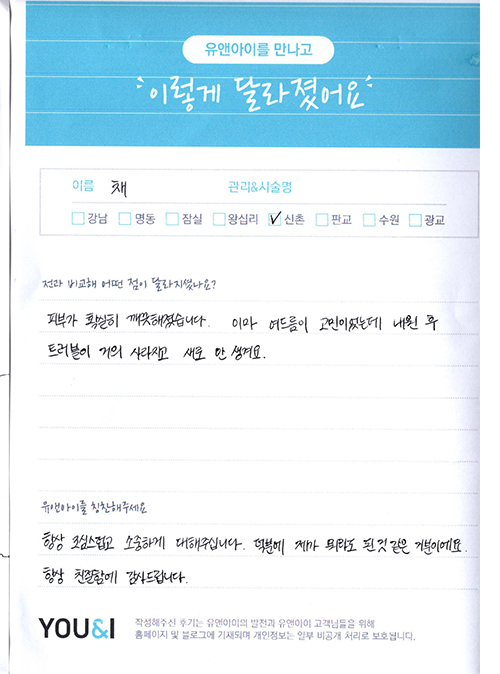 유앤아이를 만나고
이렇게 달라졌어요
이름 채 관리&시술명
강남 명동 잠실 왕십리 신촌 판교 수원 광교
전과 비교해 어떤 점이 달라지셨나요?
피부가 확실히 깨끗해졌습니다. 이마 여드름이 고민이었는데 내원 후
트러블이 거의 사라지고 새로 안 생겨요.
유앤아이를 칭찬해주세요
항상 조심스럽고 소중하게 대해주십니다. 덕분에 제가 뭐라도 된 것 같은 기분이에요.
항상 친절함에 감사드립니다.
YOU&I
작성해주신 후기는 유앤아이의 발전과 유앤아이 고객님들을 위해
홈페이지 및 블로그에 기재되며 개인정보는 일부 비공개 처리로 보호됩니다.